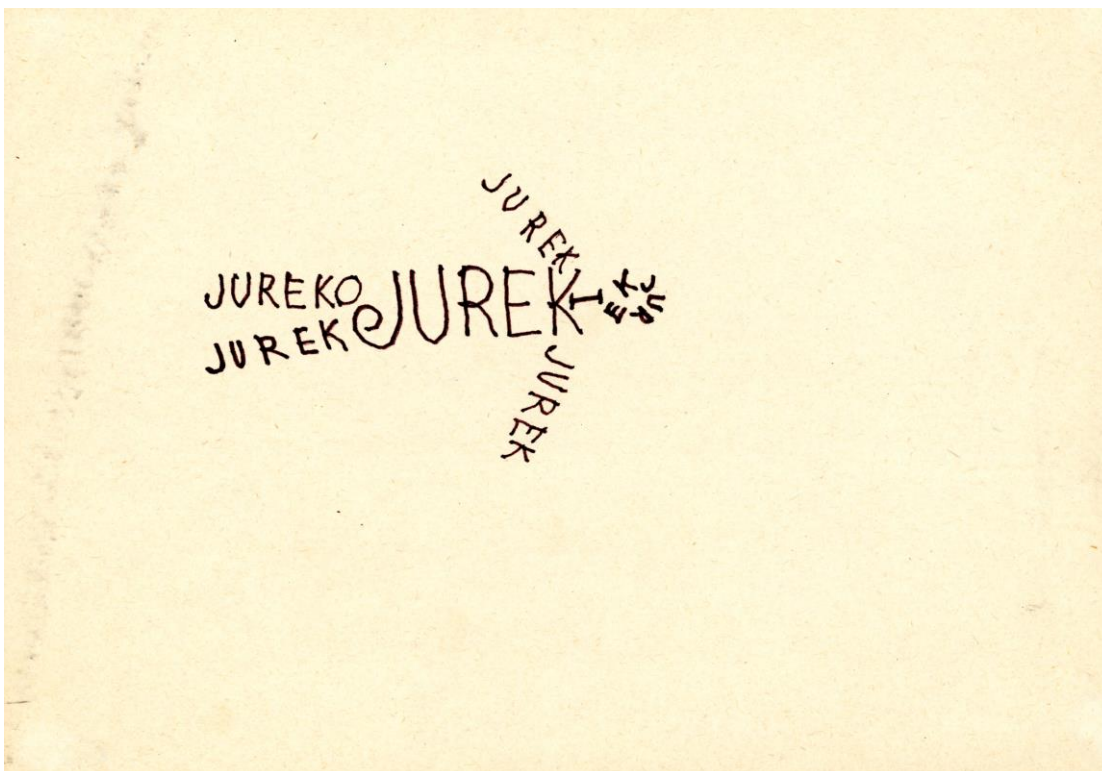 JUREK
JUREKO
JUREK
JUREK
I
JUREK
JUREK